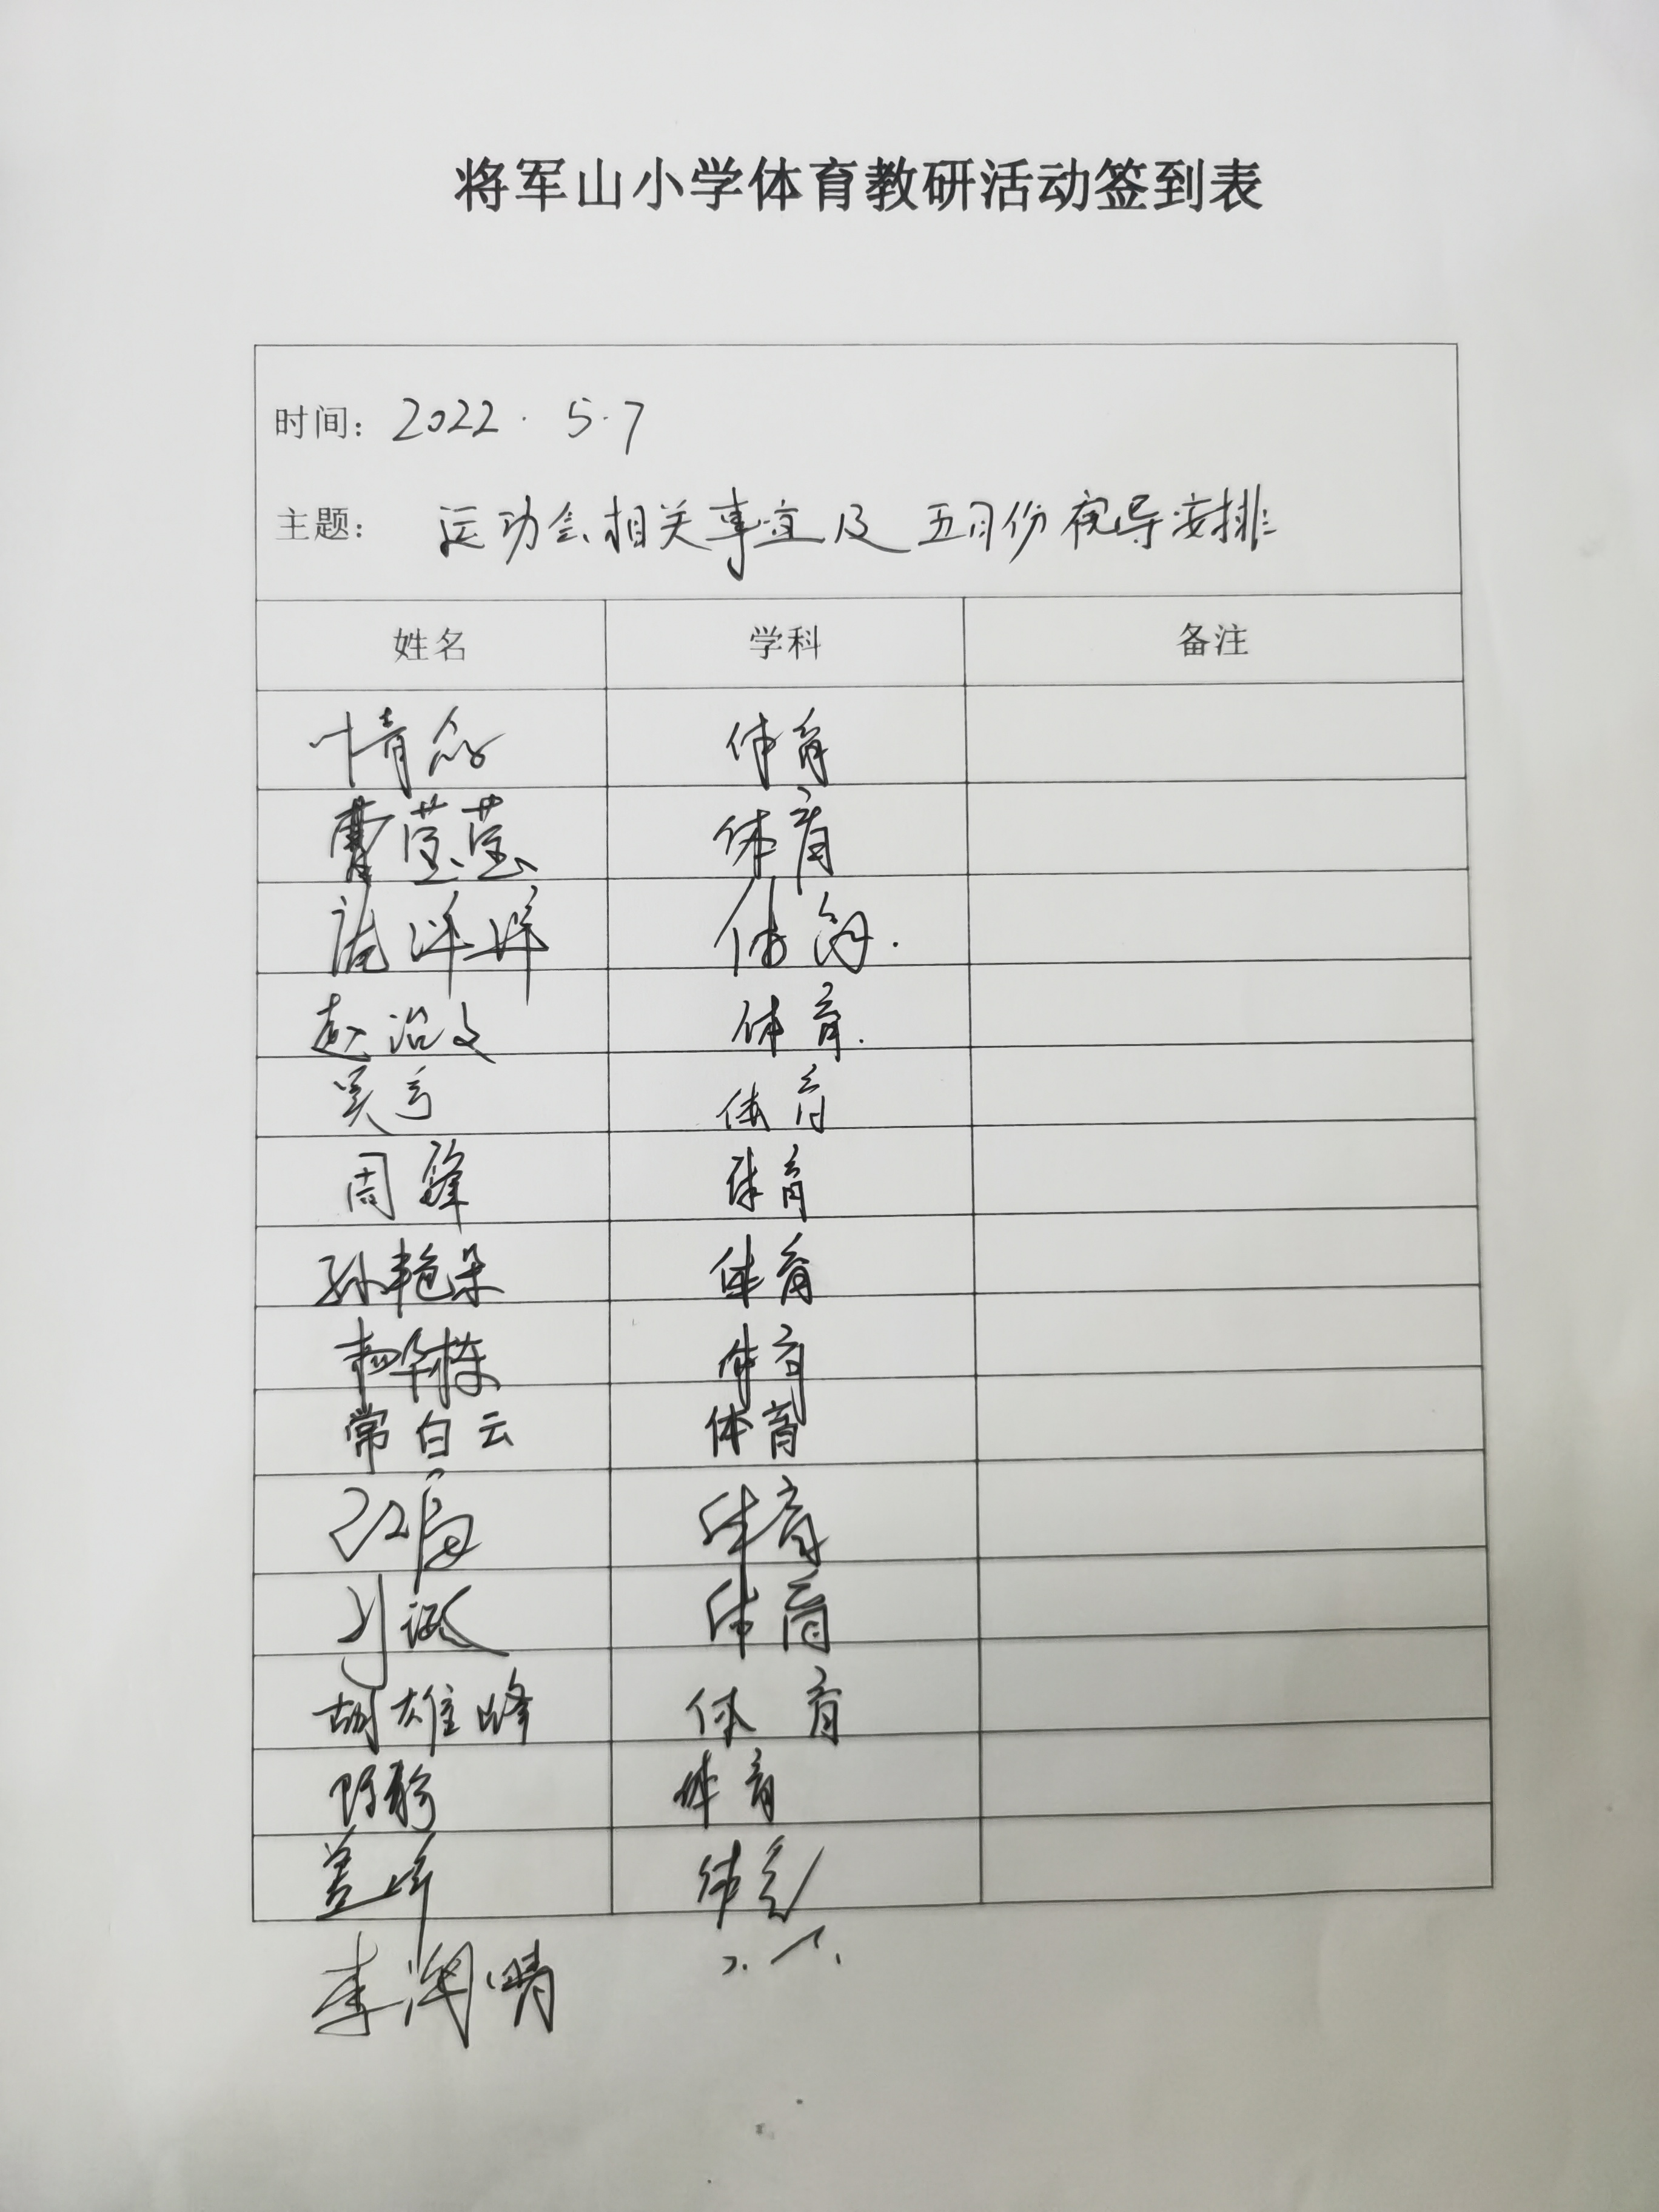 将军山小学体育教研活动签到表
时间：2022.5.7
主题：运动会相关事宜及五月份视导安排
姓名 学科 备注
体育
曹莹莹 体育
体育.
赵治文 体育.
吴亏 体育
周锋 体育
孙艳朵 体育
体育
常白云 体育
体育
体育
胡雄峰 体育
体育
姜峰 体育
李润晴